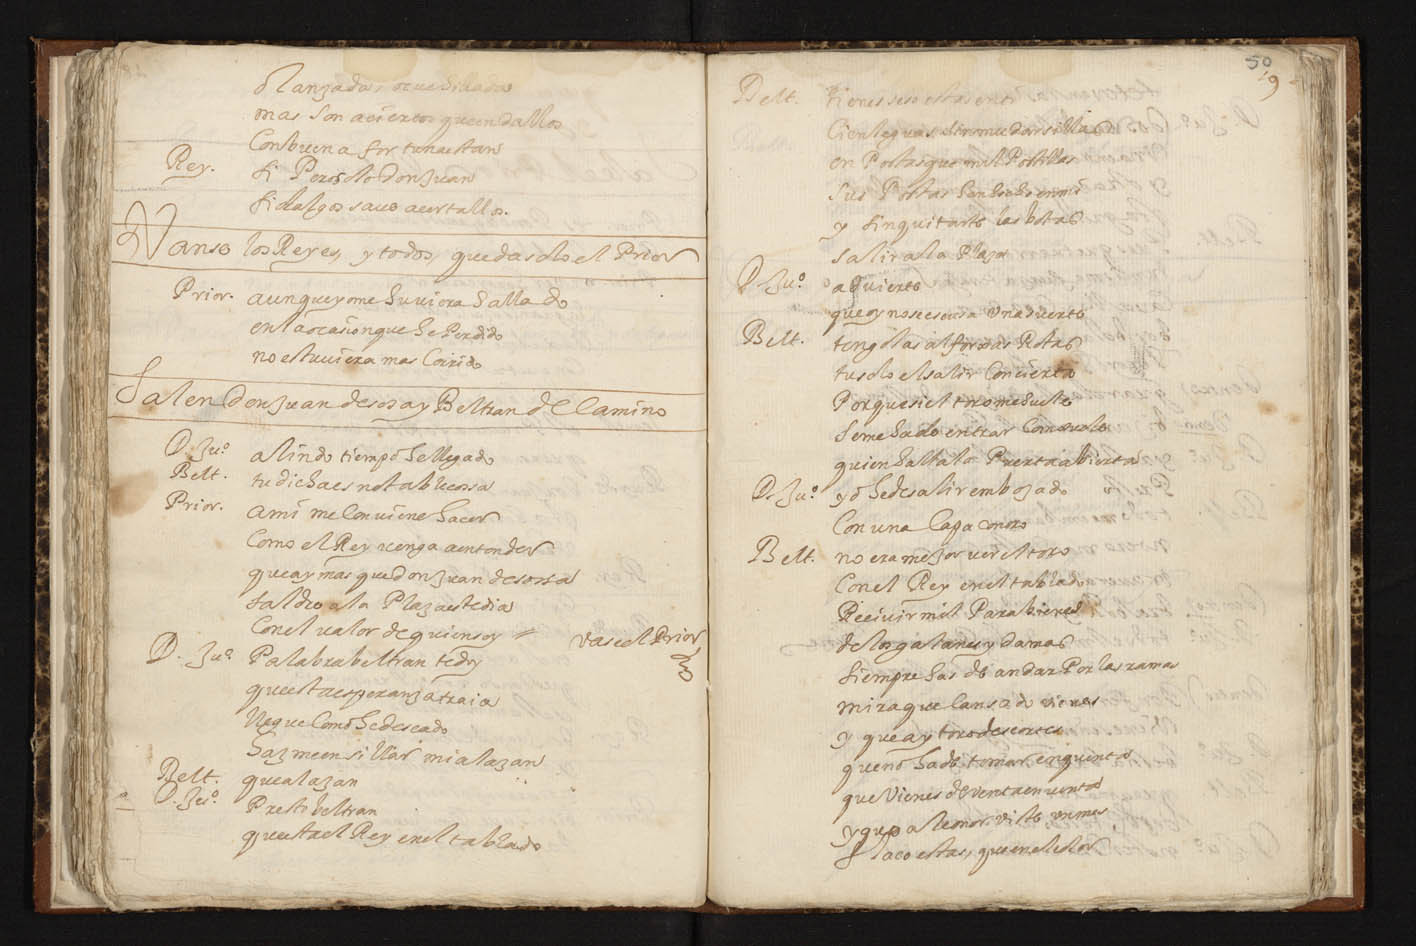 o lanzada, o cuchillada
mas son aciertos que en dallos
Con buena fortuna estan
Rey. si Pero solo Don Juan
hidalgos savo acertallos.
Vanse los Reyes, y todos, queda solo el Prior
Prior. aunque yo me huviera hallado
en la ocasion que he Perdido
no estuviera mas Corrido
Salen Don Juan de sosa y Beltran de Camino
D. Ju.º a lindo tiempo he llegado
Belt. tu dicha es notable cossa
Prior. a mi me Conviene hacer
Como el Rey venga a entender
que ay mas que don Juan de sossa
saldre a la Plaza este dia
Con el valor de quien soy = vase el Prior
D. Ju.º Palabra beltran te doy
que esta esperanza traia
llegue Como he deseado
hazme ensillar mi alazan
Belt. que alazan
D. Ju.º Presto beltran
que esta el Rey en el tablado
50
19
Belt. tienes seso estas en ti
Cien leguas sin mudar silla
en Postas que mil Postillas
sus Postas han hecho en mi
y sin quitarte las botas
salir a la Plaza
D. Ju.º advierte
que oy no se escusa una suerte
Belt. tengo las alforxas Rotas
tu solo el salir Concierta
Porque si el toro me huele
se me ha de entrar Como suele
quien halla la Puerta abierta
D. Ju.º yo he de salir embozado
Con una Capa
Belt. no era mejor ver el toro
Con el Rey en el tablado
Recivir mil Parabienes
de los galanes y damas
siempre has de andar Por las ramas
mira que Cansado vienes
y que ay toro
que no ha de tomar en quenta
que Vienes de venta en venta
y que a leonor viste un mes
flaco estas, que en el olor